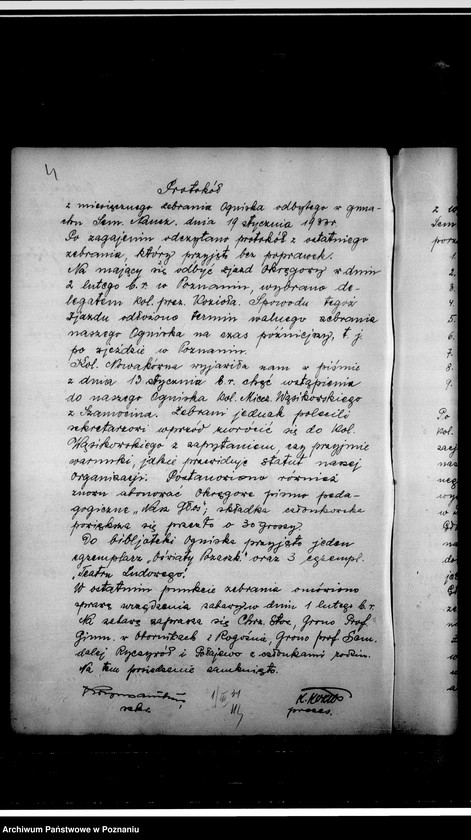 4
Protokół
z miesięcznego zebrania Ogniska odbytego w gma-
chu Sem. Naucz. dnia 19 stycznia 1931r.
Po zagajeniu odczytano protokół z ostatniego
zebrania, który przyjęto bez poprawek.
Na mający się odbyć zjazd Okręgowy w dniu
2 lutego b.r. w Poznaniu, wybrano de-
legatem kol. prez. Kozioła. Spowodu tegoż
zjazdu odłożono termin walnego zebrania
naszego Ogniska na czas późniejszy, t. j.
po zjeździe w Poznaniu.
Kol. Nowakówna wyjawiła nam w piśmie
z dnia 13 stycznia b.r. chęć wstąpienia
do naszego Ogniska kol. Miecz. Wąsikowskiego
z Szamocina. Zebrani jednak polecili
sekretarzowi wprzód zwrócić się do kol.
Wąsikowskiego z zapytaniem, czy przyjmie
warunki, jakie przewiduje statut naszej
organizacji. Postanowiono również
znowu abonować Okręgowe pismo peda-
gogiczne "Nasz Głos"; składka członkowska
powiększa się przeto o 30 groszy.
Do bibljoteki Ogniska przyjęto jeden
egzemplarz "Oświaty Pozaszk." oraz 3 egzempl.
"Teatru Ludowego".
W ostatnim punkcie zebrania omówiono
sprawę urządzenia zabawy w dniu 1 lutego b.r.
Na zabawę zaprasza się Chrz. Stow., Grono Prof.
Gimn. w Obornikach i Rogoźna, Grono prof. Sem.
dalej Ryczywół i Połajewo z członkami rodzin.
Na tem posiedzenie zamknięto.
sekr.
prezes.
z w
Sem
porz
1.
2.
3.
4.
5.
6.
7.
8.
9.
Po
Archiwum Państwowe w Poznaniu